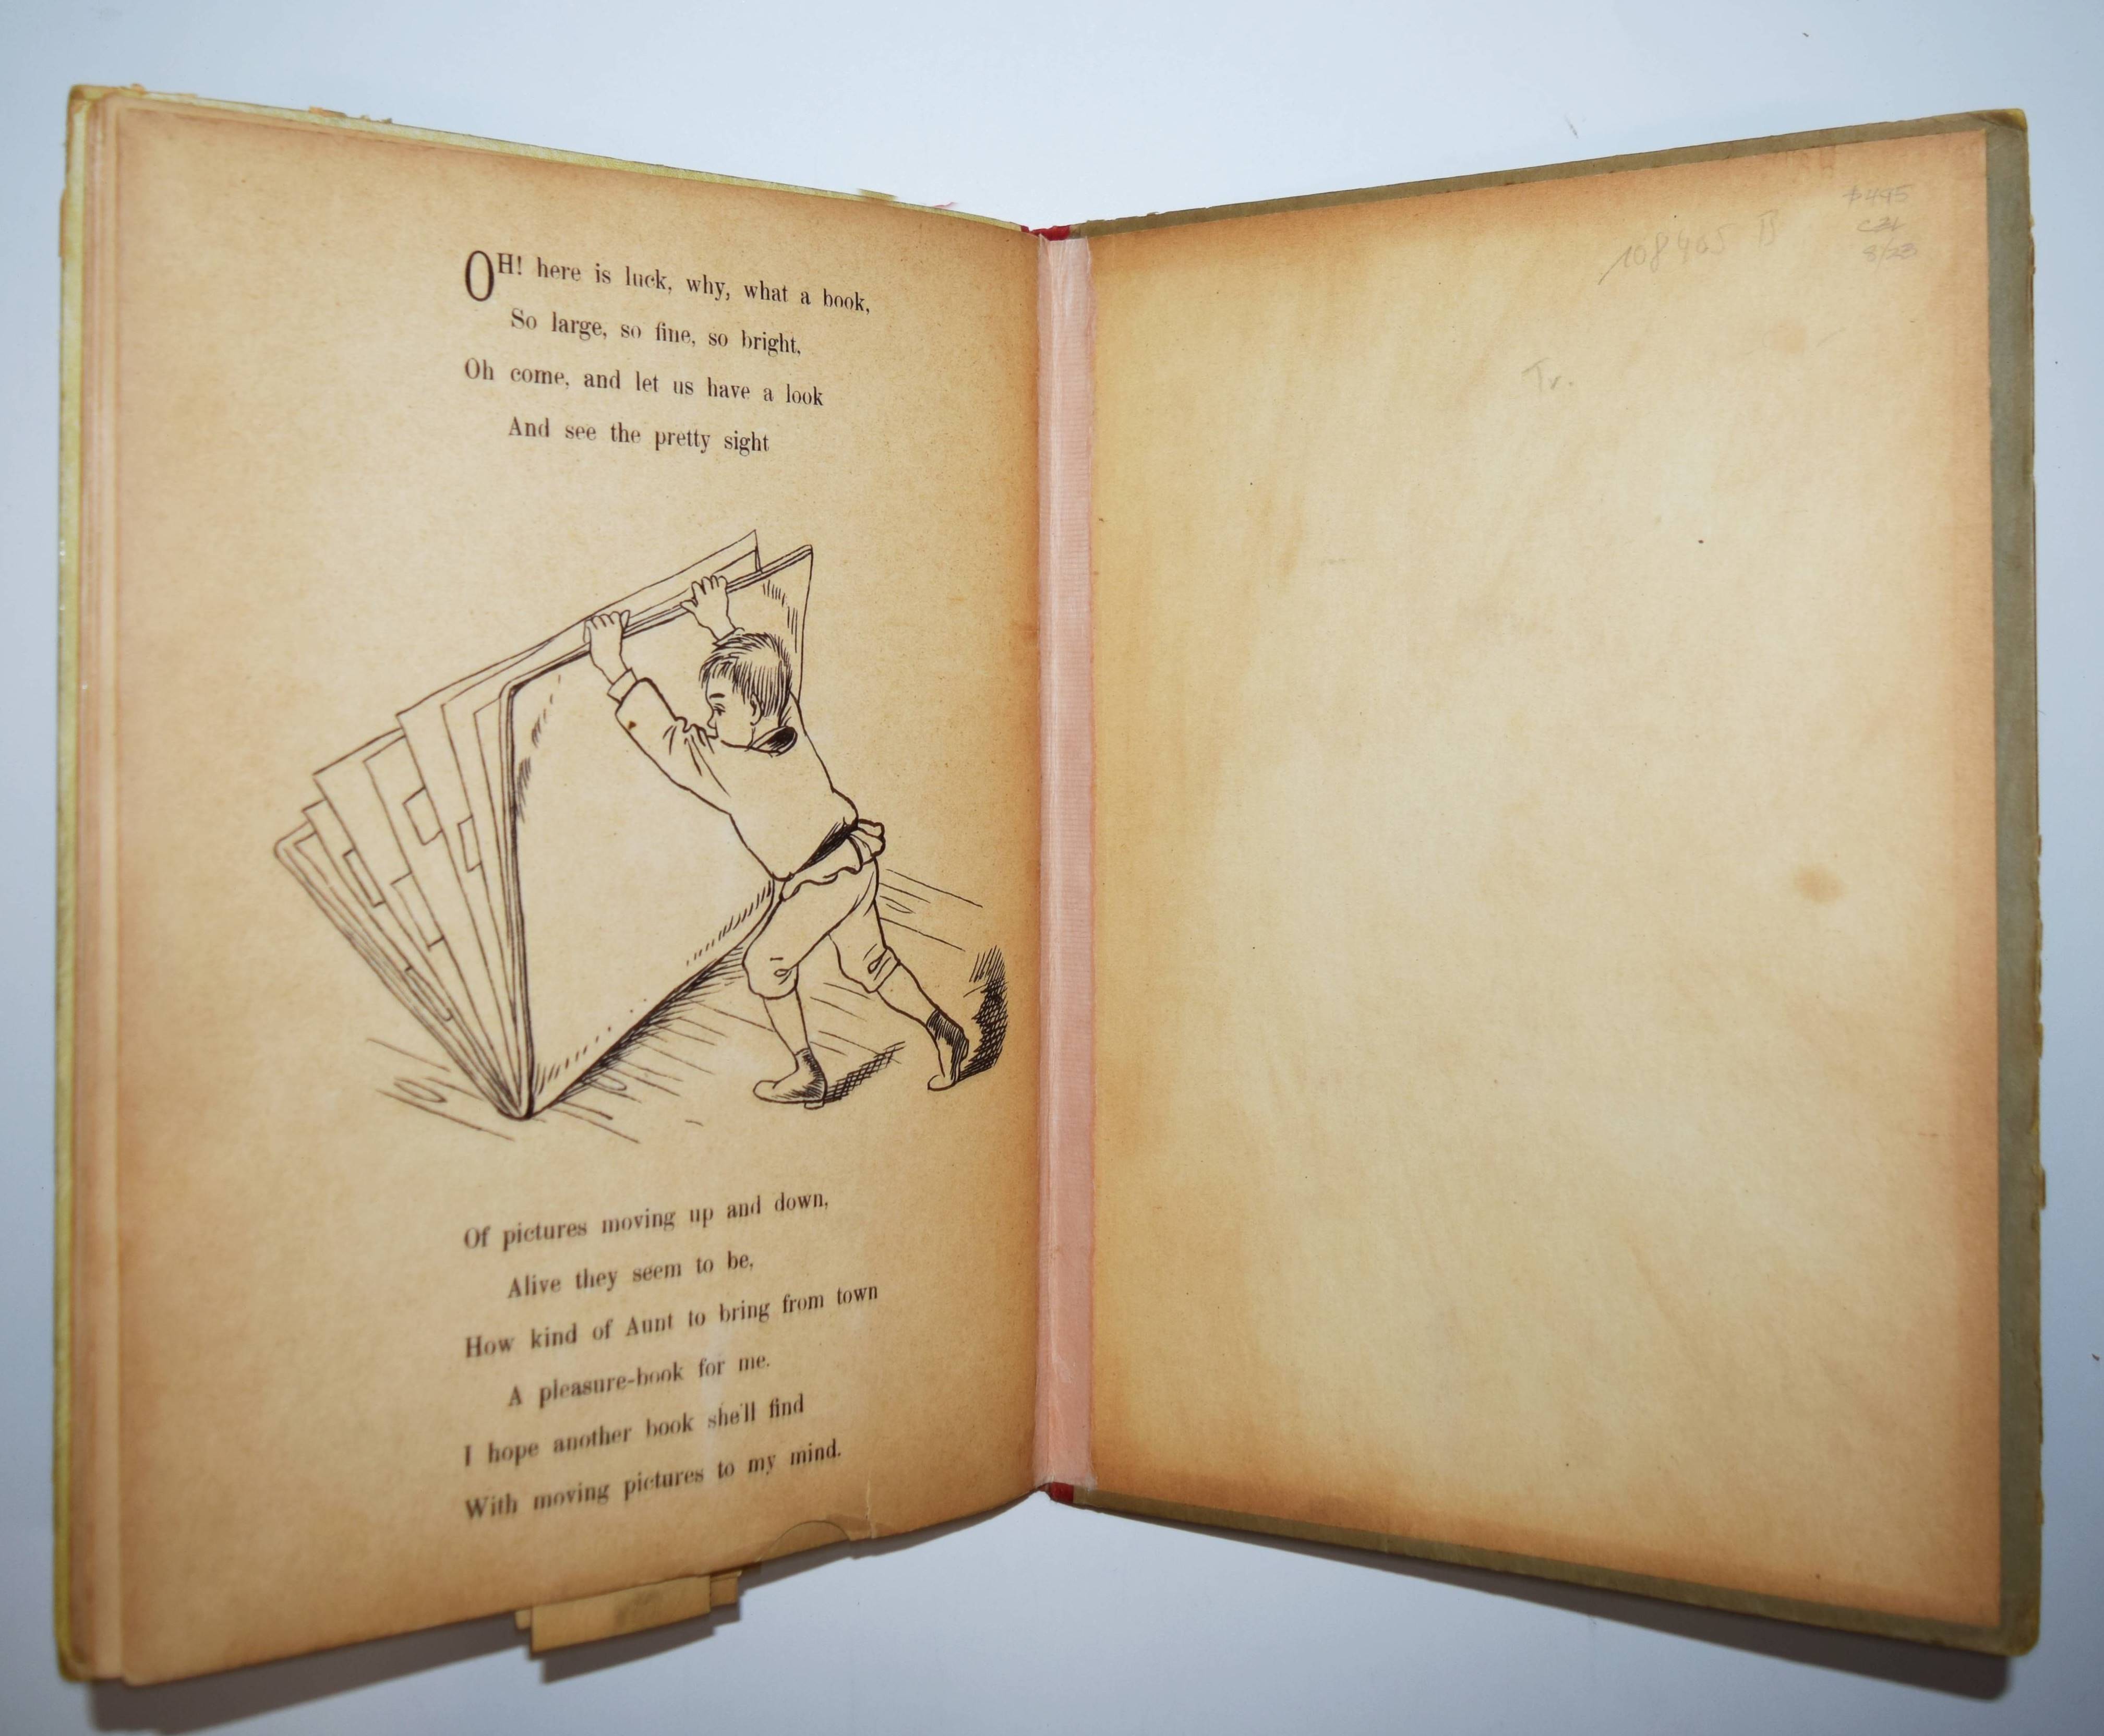 OH! here is luck, why, what a book,
So large, so fine, so bright,
Oh come, and let us have a look
And see the pretty sight
Of pictures moving up and down,
Alive they seem to be,
How kind of Aunt to bring from town
A pleasure-book for me.
I hope another book she'll find
With moving pictures to my mind.
108405 B
Tr.
8/23